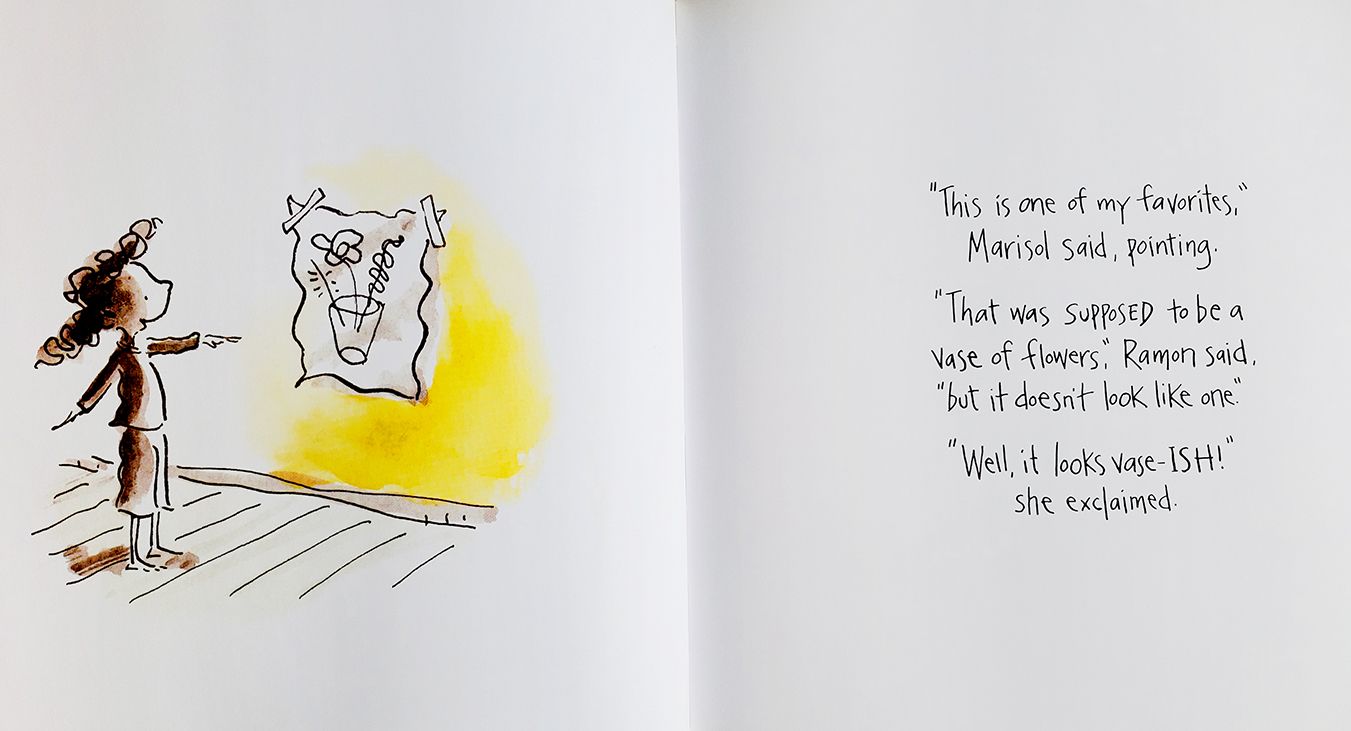 "This is one of my favorites,"
Marisol said, pointing.
"That was SUPPOSED to be a
vase of flowers," Ramon said,
"but it doesn't look like one."
"Well, it looks vase-ISH!"
she exclaimed.